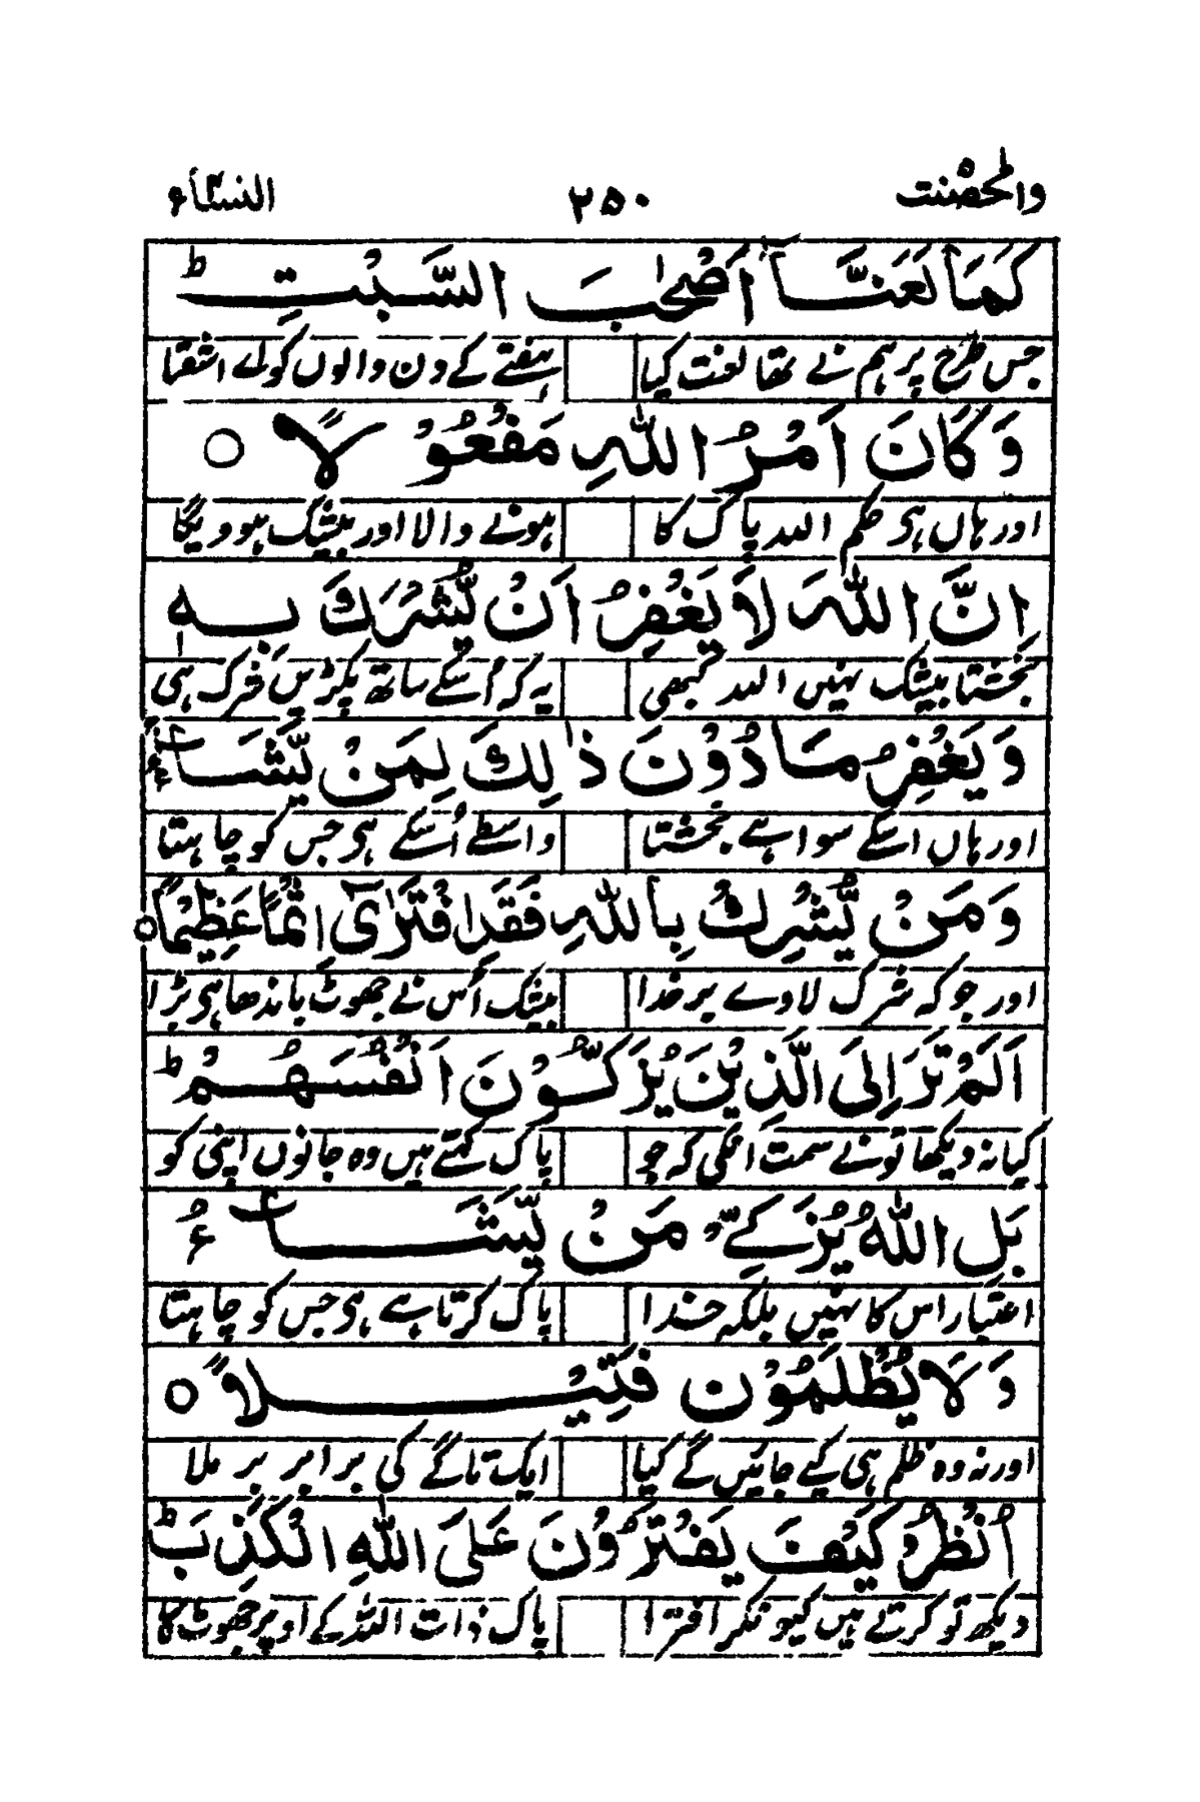 والمحصنت ۲۵۰ النسآء۴
كَمَا لَعَنَّآ اَصْحٰبَ السَّبْتِ ؕ
جس طرح پر ہم نے تھا لعنت کیا ہفتے کے دن والوں کو اے اشقیا
وَكَانَ اَمْرُ اللّٰهِ مَفْعُوْلًا ○
اور ہاں ہی حکم اللہ پاک کا ہونے والا اور بیشک ہوویگا
اِنَّ اللّٰهَ لَا يَغْفِرُ اَنْ يُّشْرَكَ بِهٖ
بخشتا بیشک نہیں اللہ کبھی یہ کہ اُسکے ساتھ پکڑیں شرک ہی
وَيَغْفِرُ مَا دُوْنَ ذٰلِكَ لِمَنْ يَّشَآءُ ۚ
اور ہاں اسکے سوا ہے بخشتا واسطے اُسکے ہی جس کو چاہتا
وَمَنْ يُّشْرِكْ بِاللّٰهِ فَقَدِ افْتَرٰٓى اِثْمًا عَظِيْمًا ○
اور جو کہ شرک لاوے بر خدا بیشک اُس نے جھوٹ باندھا ہی بڑا
اَلَمْ تَرَ اِلَى الَّذِيْنَ يُزَكُّوْنَ اَنْفُسَهُمْ ؕ
کیا نہ دیکھا تونے سمت انکی کہ جو پاک کہتے ہیں وہ جانوں اپنی کو
بَلِ اللّٰهُ يُزَكِّيْ مَنْ يَّشَآءُ
اعتبار اس کا نہیں بلکہ خدا پاک کرتا ہے ہی جس کو چاہتا
وَلَا يُظْلَمُوْنَ فَتِيْلًا ○
اور نہ وہ ظلم ہی کیے جائیں گے کیا ایک تاگے کی برابر بر ملا
اُنْظُرْ كَيْفَ يَفْتَرُوْنَ عَلَى اللّٰهِ الْكَذِبَ ؕ
دیکھ تو کرتے ہیں کیونکر افترا پاک ذات اللہ کے اوپر جھوٹ کا